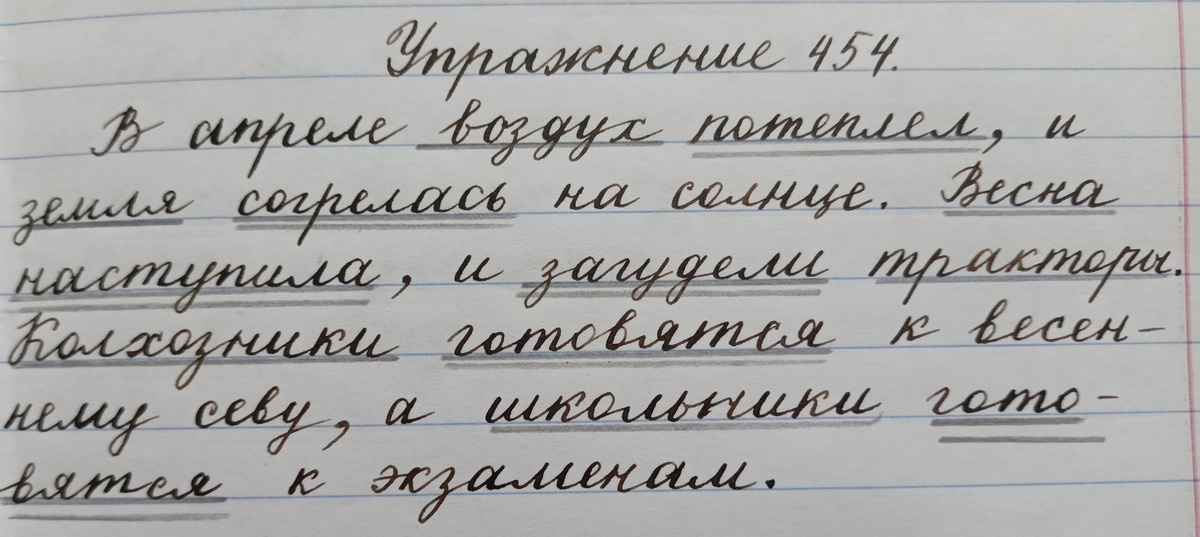 Упражнение 454.
В апреле воздух потеплел, и
земля согрелась на солнце. Весна
наступила, и загудели тракторы.
Колхозники готовятся к весен-
нему севу, а школьники гото-
вятся к экзаменам.